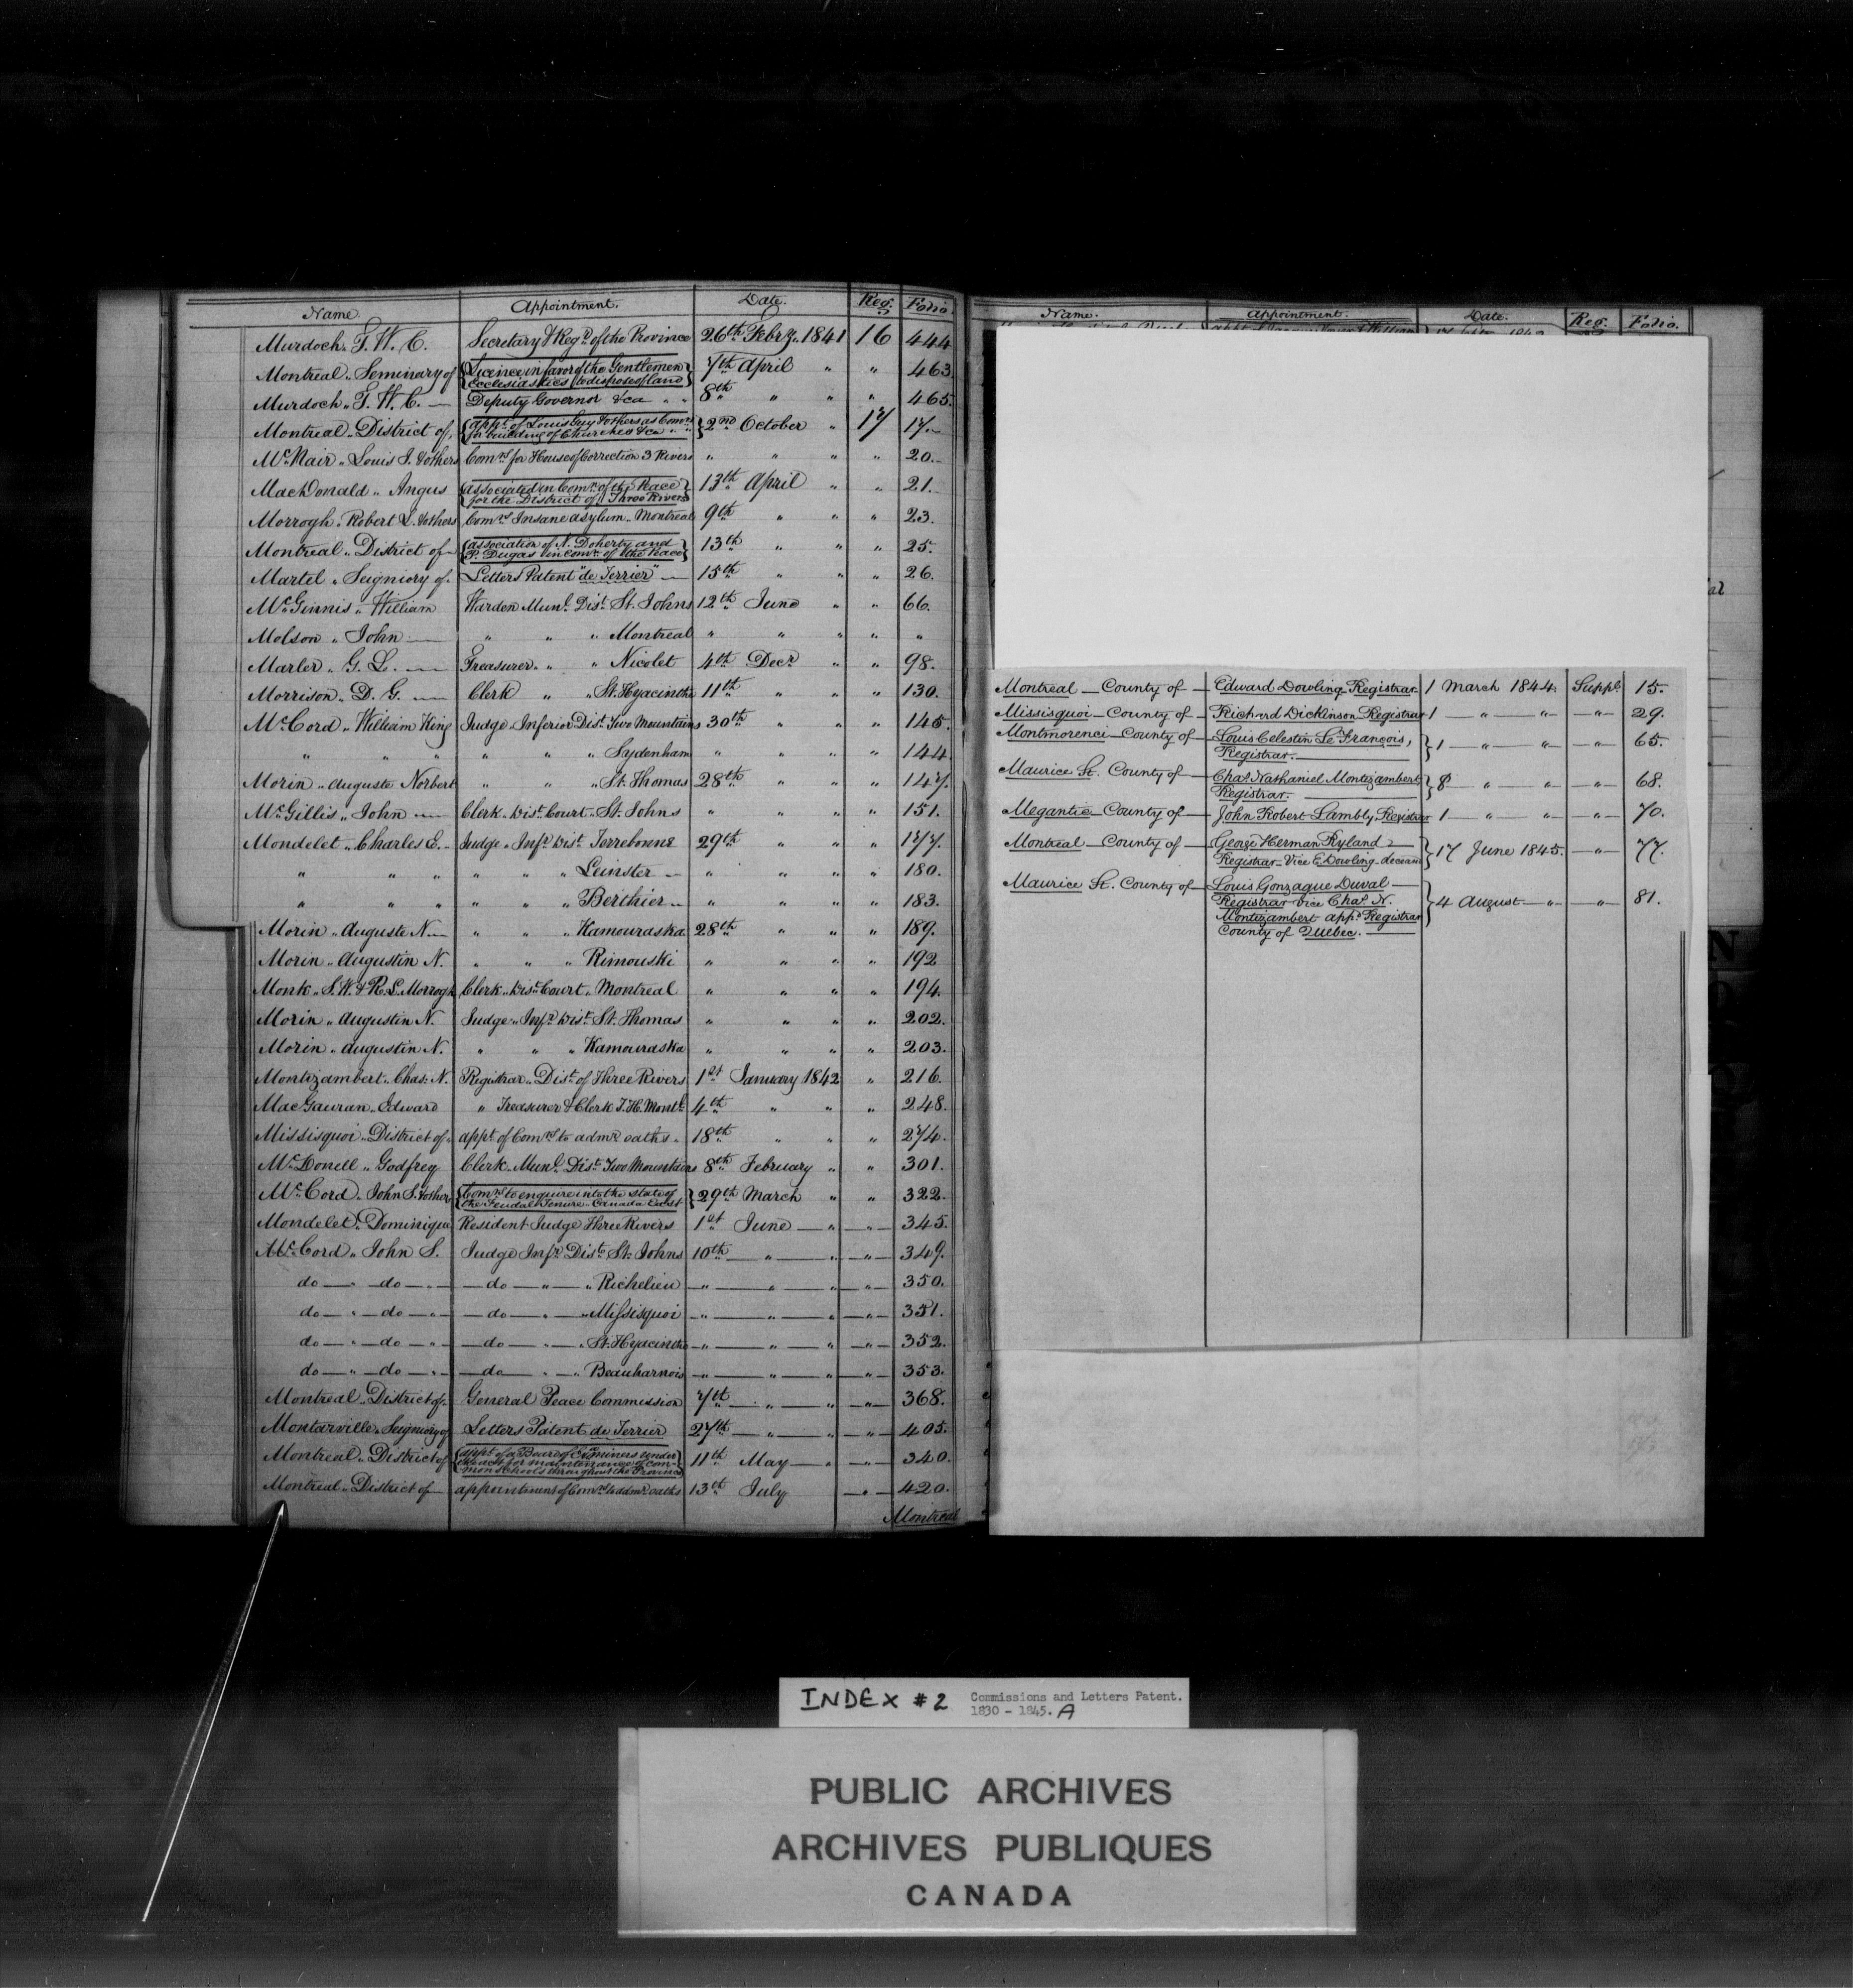 Name. Appointment. Date. Reg. Folio.
Murdoch „ T. W. C. Secretary & Regr. of the Province 26th Febry. 1841 16 444
Montreal „ Seminary of {Licence in favor of the Gentlemen 7th April „ „ 463.
Ecclesiastics to dispose of land}
Murdoch „ T. W. C. — Deputy Governor &ca „ „ 8th „ „ „ 465.
Montreal „ District of, {appt. of Louis Guy & others as Comrs. }2nd October „ 17 17.
for building of Churches &ca „ „
McNair „ Louis I. & others Comrs. for House of Correction 3 Rivers „ „ „ „ 20.
MacDonald „ Angus {associated in Comn. of the Peace} 13th April „ „ 21.
for the District of Three Rivers
Morrogh „ Robert L. & others Comrs. Insane asylum „ Montreal 9th „ „ „ 23.
Montreal „ District of {association of N. Doherty and 13th „ „ „ 25.
P. Dugas in Comn. of the Peace}
Martel „ Seigniory of. Letters Patent "de Terrier" — 15th „ „ „ 26.
McGinnis „ William Warden Munl. Dist. St. Johns 12th June „ „ 66.
Molson „ John — „ „ „ Montreal „ „ „ „ „
Marler „ G. L. — Treasurer „ „ „ Nicolet 4th Decr. „ „ 98.
Morrison „ D. G. — Clerk „ „ St. Hyacinthe 11th „ „ „ 130.
McCord „ William King Judge „ Inferior Dist. Two Mountains 30th „ „ „ 145.
„ „ „ „ „ „ Sydenham „ „ „ „ 144.
Morin „ Auguste Norbert „ „ „ St. Thomas 28th „ „ „ 147.
McGillis „ John — Clerk „ Dist. Court „ St. Johns „ „ „ „ 151.
Mondelet „ Charles E. — Judge „ Infr. Dist. Terrebonne 29th „ „ „ 177.
„ „ „ „ „ „ Leinster — „ „ „ „ 180.
„ „ „ „ „ „ Berthier — „ „ „ „ 183.
Morin „ Auguste N. — „ „ „ Kamouraska 28th „ „ „ 189.
Morin „ Augustin N. „ „ „ Rimouski „ „ „ „ 192
Monk „ S. W. & R. L. Morrogh Clerk „ Dist. Court „ Montreal „ „ „ „ 194.
Morin „ Augustin N. Judge „ Infr. Dist. St. Thomas „ „ „ „ 202.
Morin „ Augustin N. „ „ „ Kamouraska „ „ „ „ 203.
Montizambert „ Chas. N. Registrar „ Dist. of Three Rivers 1st January 1842 „ 216.
MacGauran „ Edward „ Treasurer & Clerk T. H. Montl. 4th „ „ „ 248.
Missisquoi „ District of „ appt. of Comrs. to admr. oaths „ 18th „ „ „ 274.
McDonell „ Godfrey Clerk „ Munl. Dist. Two Mountains 8th February „ „ 301.
McCord „ John S. & others {Comrs. to enquire into the state of }29th March „ „ 322.
the Feudal Tenure „ Canada East
Mondelet „ Dominique Resident Judge Three Rivers 1st June — „ — „ — 345.
McCord „ John S. Judge Infr. Dist. St. Johns 10th — „ — „ — „ — 349.
do — „ — do — „ — do — „ — „ Richelieu — „ — „ — „ — „ — 350.
do — „ — do — „ — do — „ — „ Missisquoi — „ — „ — „ — „ — 351.
do — „ — do — „ — do — „ — „ St. Hyacinthe — „ — „ — „ — „ — 352.
do — „ — do — „ — do — „ — „ Beauharnois — „ — „ — „ — „ — 353.
Montreal „ District of „ General Peace Commission 7th — „ — „ — „ — 368.
Montarville „ Seigniory of Letters Patent de Terrier 27th — „ — „ — „ — 405.
Montreal „ District of {appt. of a Board of Examiners under 11th May — „ — „ — 340.
the act for maintenance of com-
mon schools throughout the Province}
Montreal „ District of — appointment of Comrs. to admr. oaths 13th July — „ — 420.
Montreal
Name. Appointment. Date. Reg. Folio.
Montreal — County of — Edward Dowling Registrar 1 March 1844. Suppt. 15.
Missisquoi — County of — Richard Dickinson Registrar 1 — „ — „ — „ — 29.
Montmorenci — County of — Louis Celestin Le François, }1 — „ — „ — „ — 65.
Registrar. —
Maurice St. County of — Chas. Nathaniel Montizambert }8 — „ — „ — „ — 68.
Registrar. —
Megantic — County of — John Robert Lambly, Registrar 1 — „ — „ — „ — 70.
Montreal — County of — George Herman Ryland }17 June 1845. — „ — 77.
Registrar — Vice E. Dowling deceased
Maurice St. County of — Louis Gonzague Duval — }4 August — „ — „ — 81.
Registrar vice Chas. N.
Montizambert appd. Registrar
County of Quebec. —
INDEX # 2 Commissions and Letters Patent.
1830 - 1845. A
PUBLIC ARCHIVES
ARCHIVES PUBLIQUES
CANADA